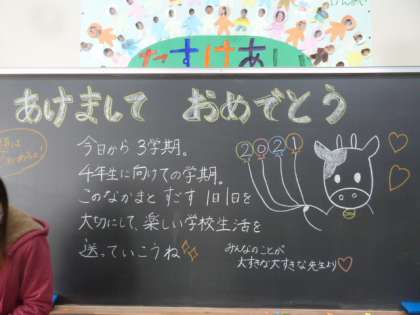 たすけあい
あけまして おめでとう
2021
今日から 3学期。
4年生に向けての学期。
このなかまと すごす 1日1日を
大切にして、楽しい学校生活を
送っていこうね
みんなのことが
大すきな大すきな先生より